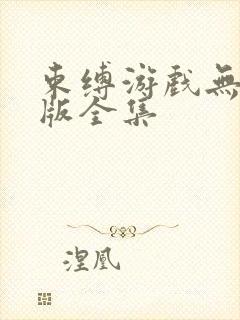 束缚游戏無
版全集
涅凰